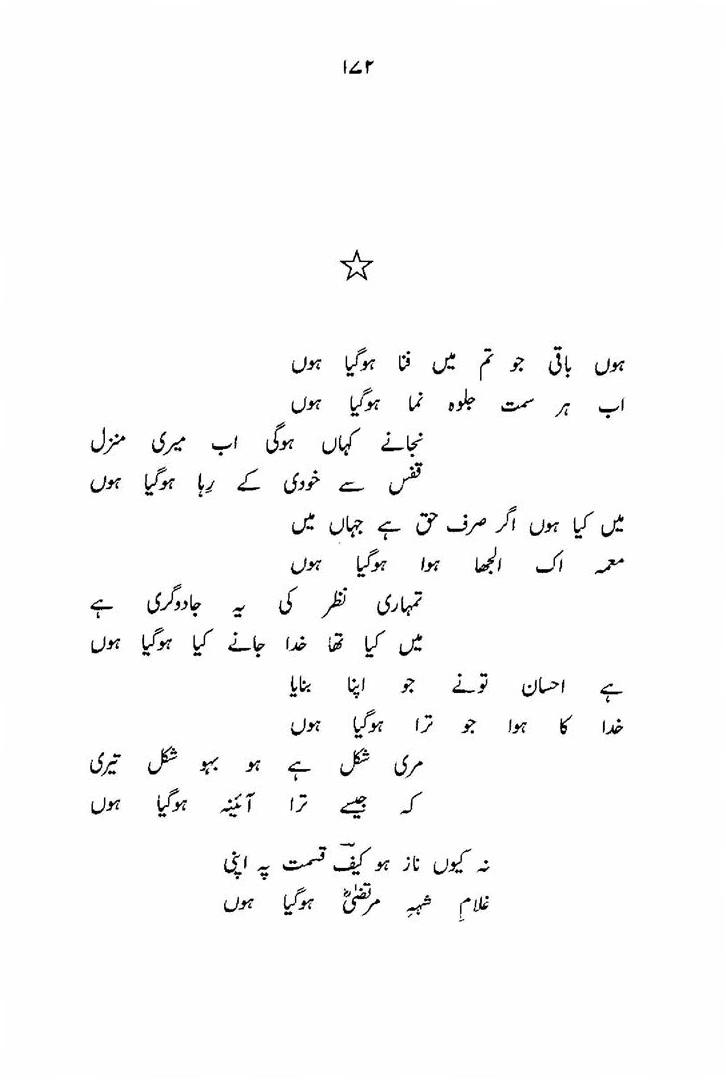 ۱۷۲
ہوں باقی جو تم میں فنا ہوگیا ہوں
اب ہر سمت جلوہ نما ہوگیا ہوں
نجانے کہاں ہوگی اب میری منزل
قفس سے خودی کے رِہا ہوگیا ہوں
میں کیا ہوں اگر صرف حق ہے جہاں میں
معمہ اک الجھا ہوا ہوگیا ہوں
تمہاری نظر کی یہ جادوگری ہے
میں کیا تھا خدا جانے کیا ہوگیا ہوں
ہے احسان تونے جو اپنا بنایا
خدا کا ہوا جو ترا ہوگیا ہوں
مری شکل ہے ہو بہو شکل تیری
کہ جیسے ترا آئینہ ہوگیا ہوں
نہ کیوں ناز ہو کیفؔ قسمت پہ اپنی
غلامِ شہہِ مرتضیٰؓ ہوگیا ہوں